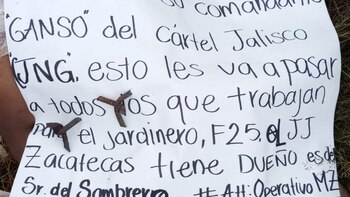 su comandante
"GANSO" del Cártel Jalisco
"CJNG". esto les va a pasar
a todos los que trabajan
para el jardinero, F25. EL JJ
Zacatecas tiene DUEÑO es del
Sr. del Sombrero #Att: Operativo MZ